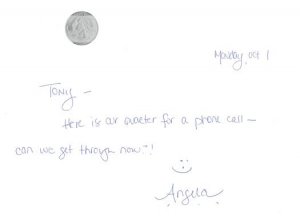 Monday, Oct 1
Tony —
Here is our quarter for a phone call —
can we get through now?!
Angela